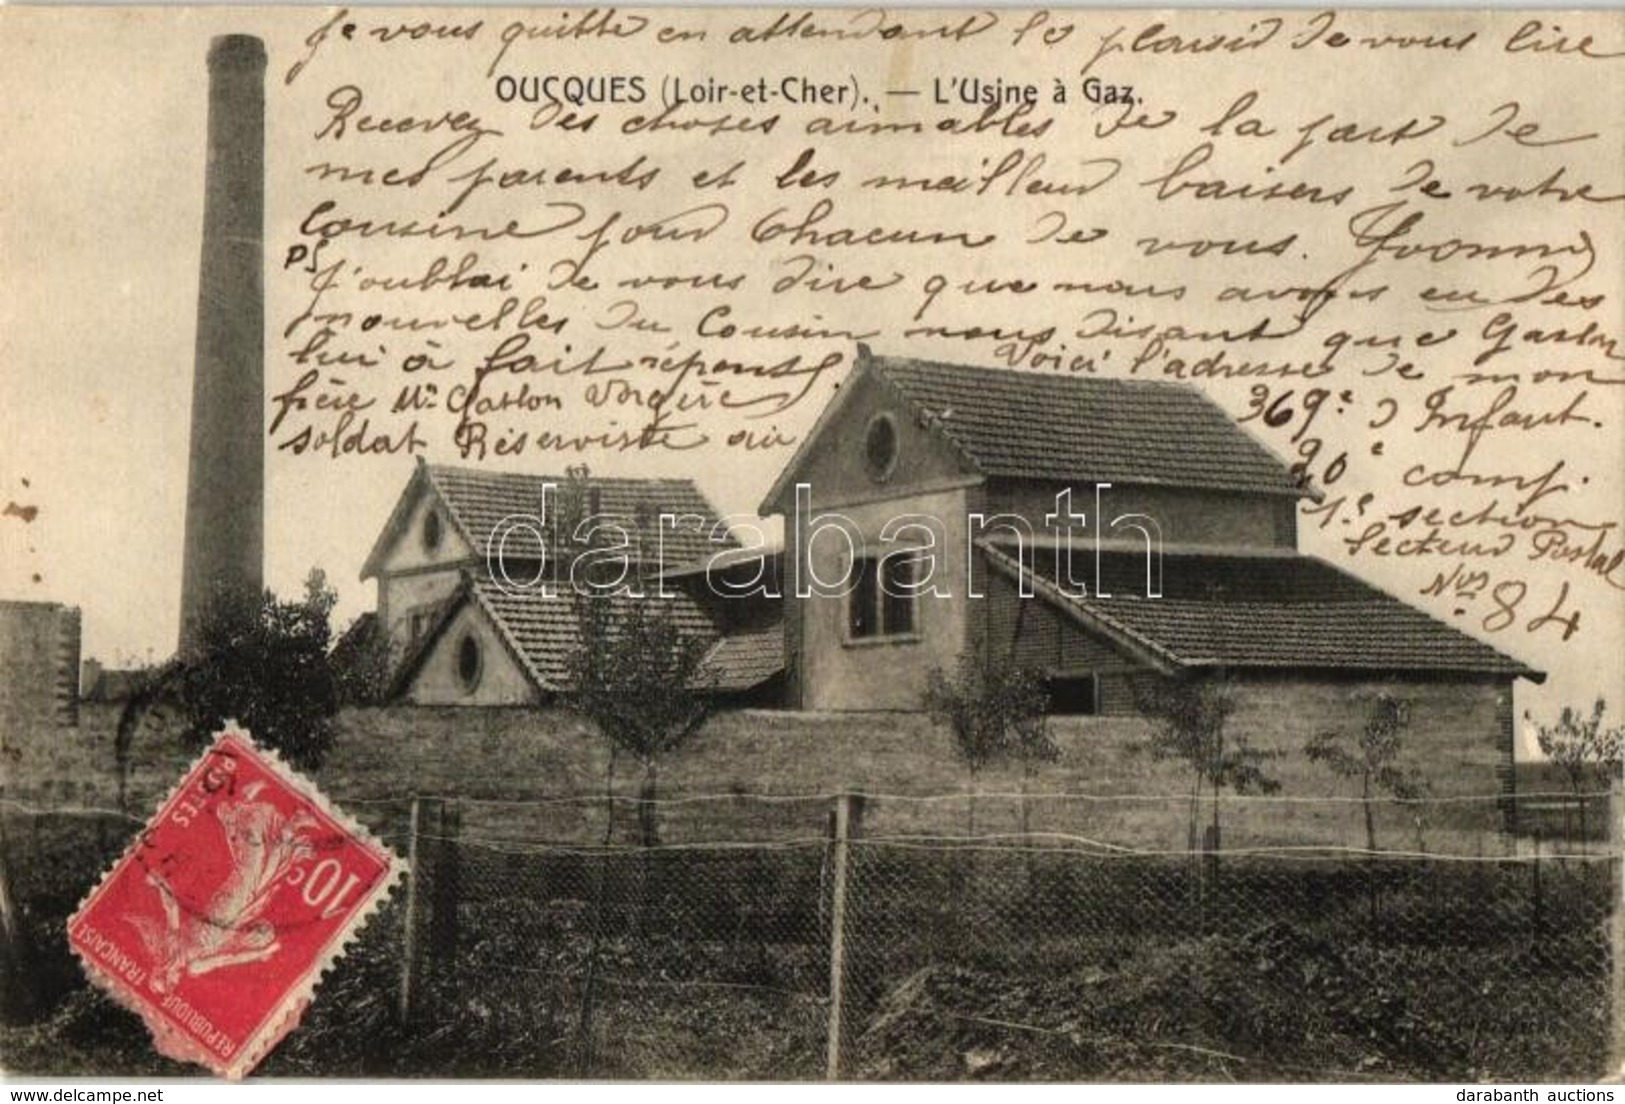 je vous quitte en attendant le plaisir de vous lire
OUCQUES (Loir-et-Cher). — L'Usine à Gaz.
Recevez des choses aimables de la part de
mes parents et les meilleurs baisers de votre
cousine pour chacun de vous. Yvonne
PS
J'oubliai de vous dire que nous avons eu des
nouvelles du Cousin nous disant que Gaston
lui à fait réponse. Voici l'adresse de mon
frère Mr Gaston
soldat Réserviste au 369e d'Infant.
20e comp.
1e section
Secteur Postal
Nos 84
darabanth
10c
POSTES
REPUBLIQUE FRANÇAISE
darabanth auctions